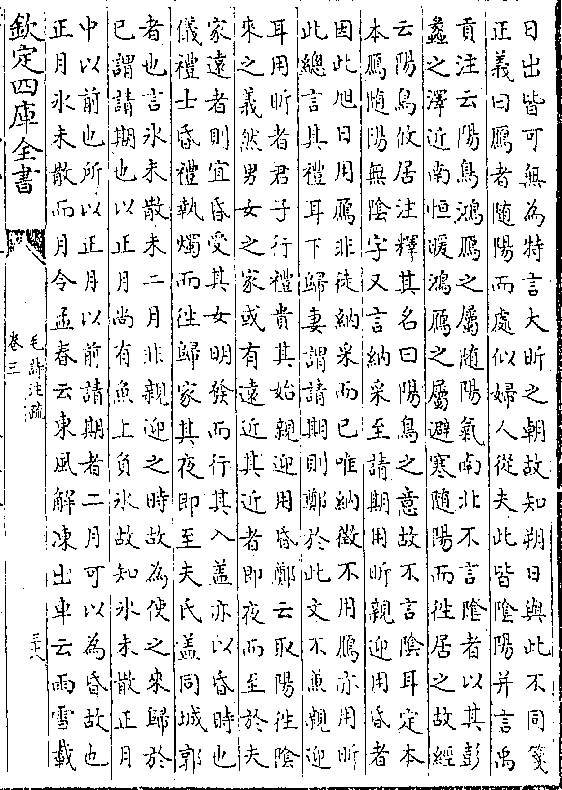 日出皆可無為特言大昕之朝故知朔日與此不同箋
正義曰鴈者随陽而處似婦人從夫此皆陰陽并言禹
貢注云陽鳥鴻鴈之屬随陽氣南北不言隂者以其彭
蠡之澤近南恒暖鴻鴈之屬避寒随陽而往居之故經
云陽鳥攸居注釋其名曰陽鳥之意故不言陰耳定本
本鴈随陽無陰字又言納采至請期用昕親迎用昏者
因此旭日用鴈非徒納采而已唯納徵不用鴈亦用昕
此總言其禮耳下歸妻謂請期則鄭於此文不兼親迎
耳用昕者君子行禮貴其始親迎用昏鄭云取陽往陰
來之義然男女之家或有遠近其近者即夜而至於夫
家遠者則宜昏受其女明發而行其入盖亦以昏時也
儀禮士昏禮執燭而往歸家其夜即至夫氏盖同城郭
者也言氷未散未二月非親迎之時故為使之來歸於
已謂請期也以正月尚有魚上負氷故知氷未散正月
中以前也所以正月以前請期者二月可以為昏故也
正月氷未散而月令孟春云東風解凍出車云雨雪載
欽定四庫全書
毛詩注疏
卷三